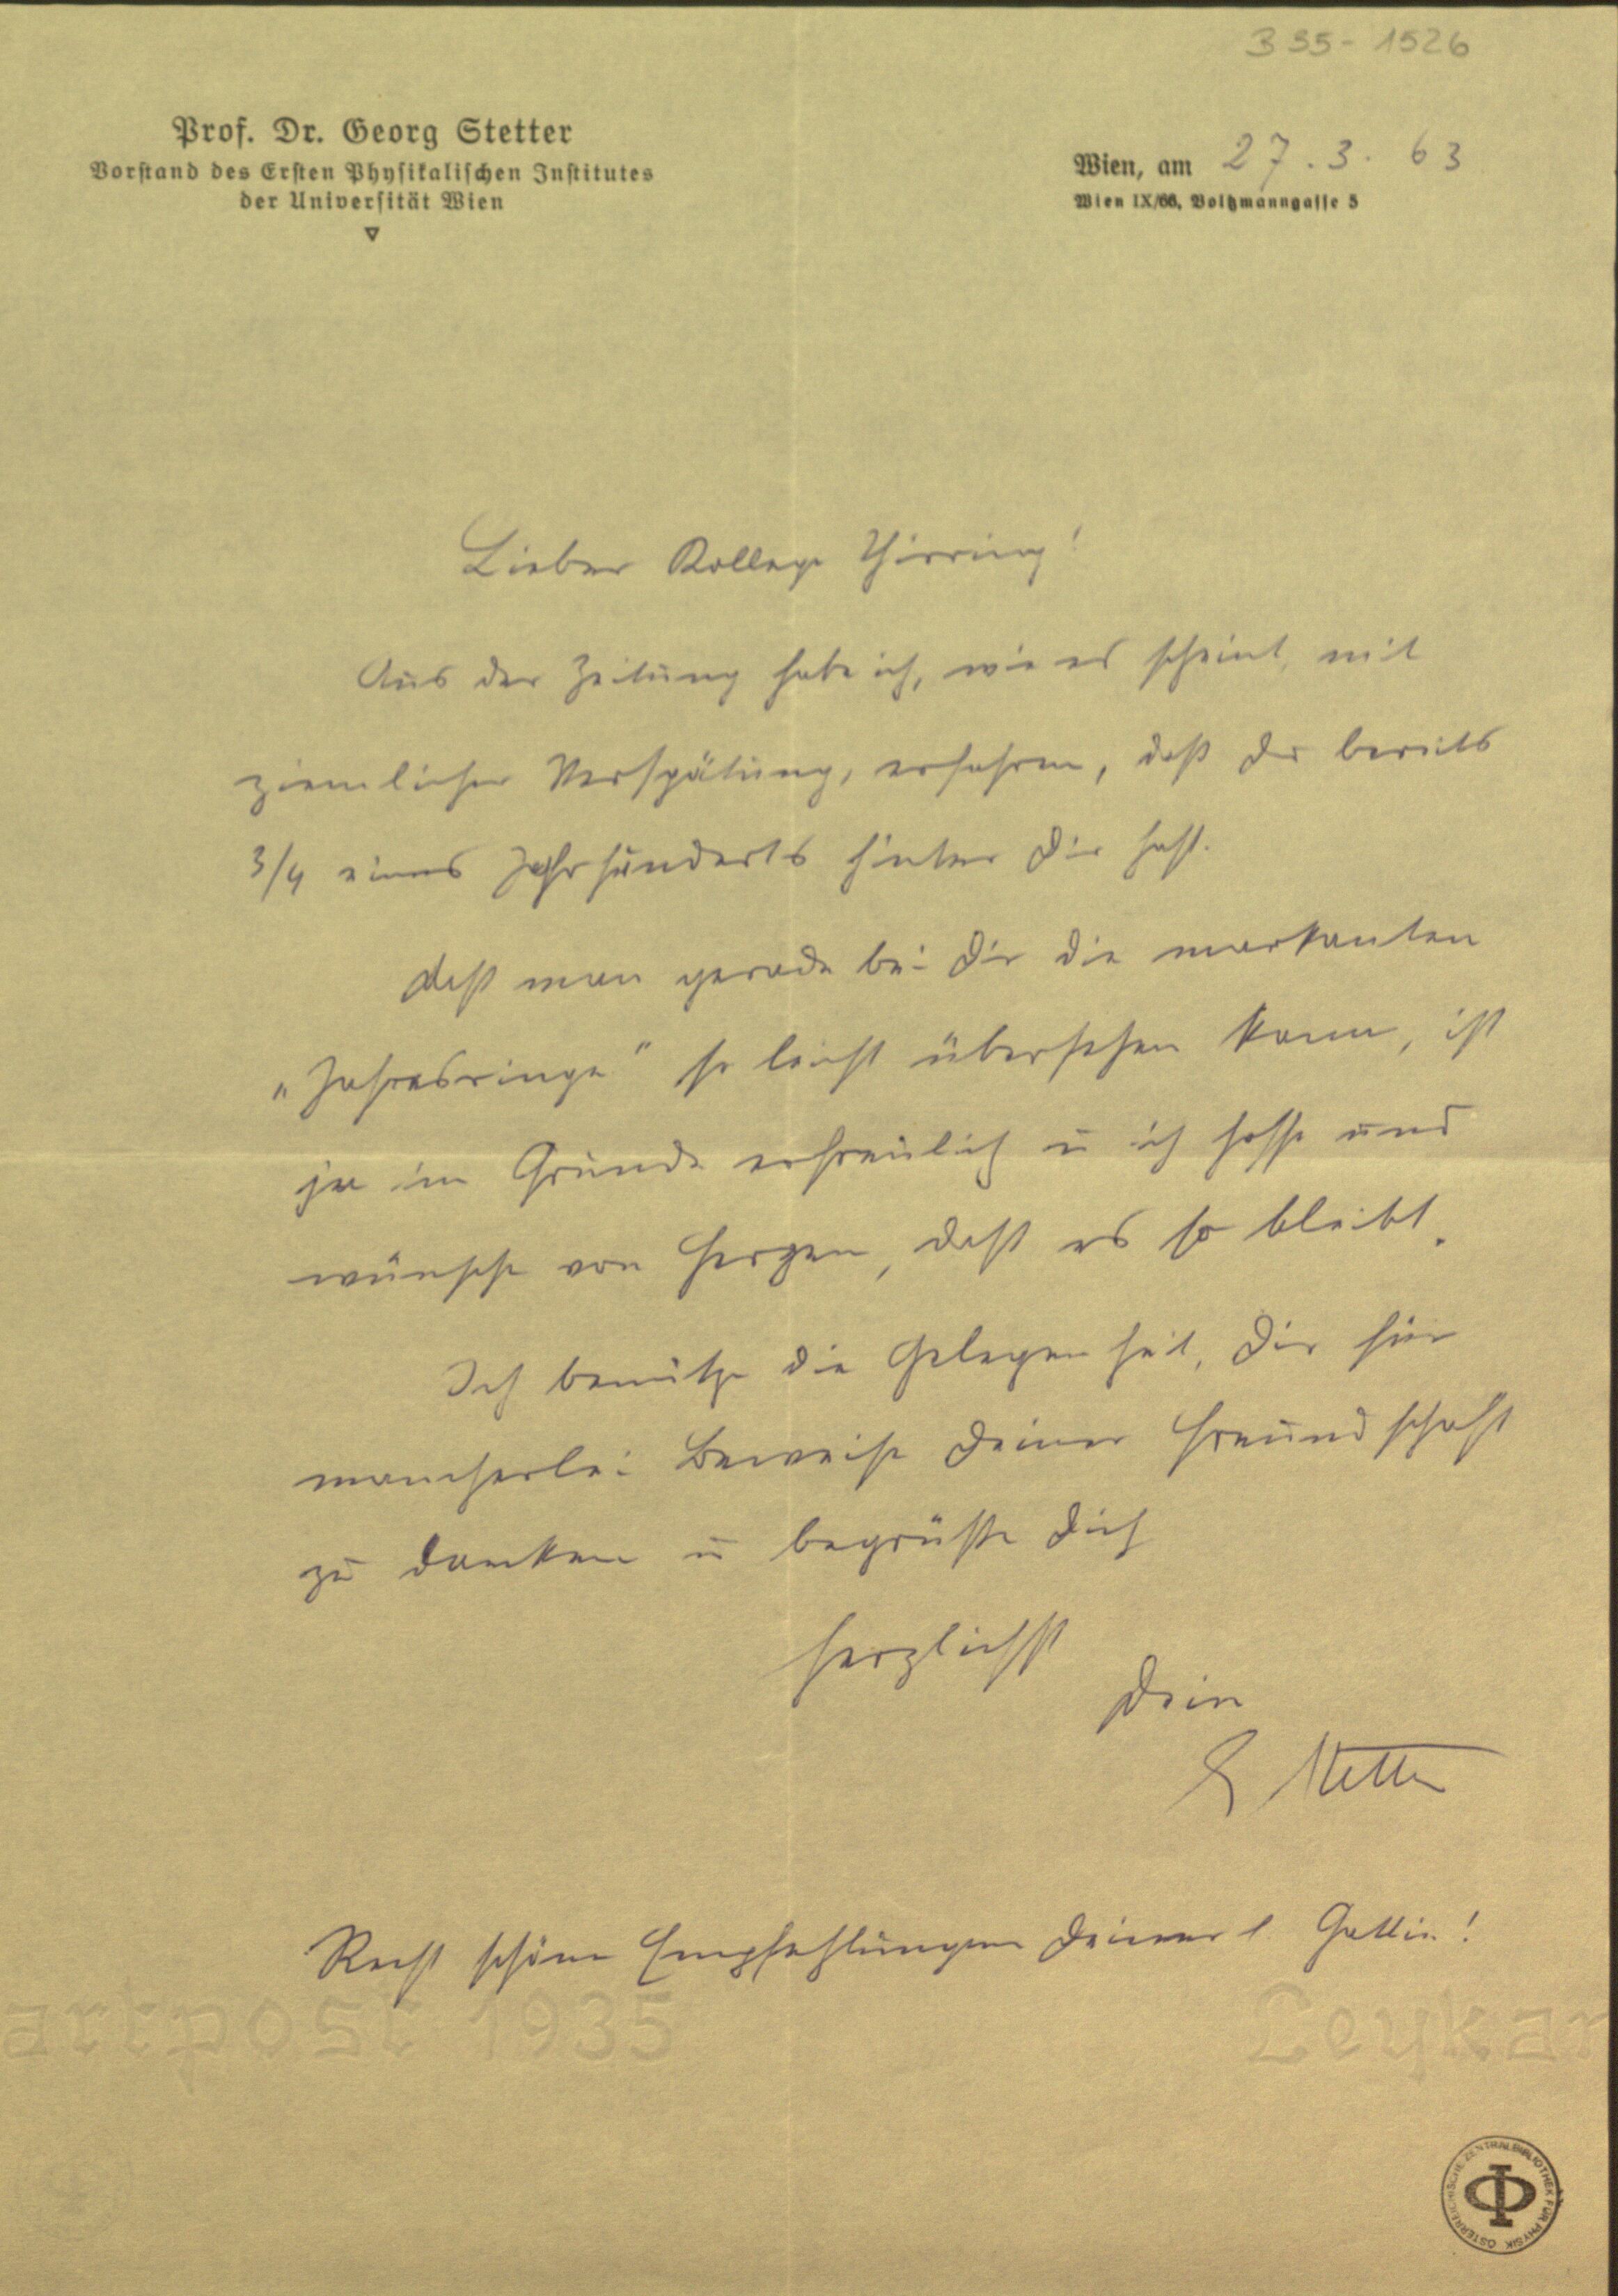 B35-1526
Prof. Dr. Georg Stetter
Vorstand des Ersten Physikalischen Institutes
der Universität Wien
Wien, am 27.3.63
Wien IX/66, Boltzmanngasse 5
Lieber Kollege Thirring!
Aus der Zeitung habe ich, wie es scheint, mit
ziemlicher Verspätung, erfahren, daß Du bereits
3/4 eines Jahrhunderts hinter Dir hast.
Daß man gerade bei Dir die markanten
„Jahresringe" so leicht übersehen kann, ist
ja im Grunde erfreulich u ich hoffe und
wünsche von Herzen, daß es so bleibt.
Ich benütze die Gelegenheit, Dir für
mancherlei Beweise Deiner Freundschaft
zu danken u begrüße Dich
herzlichst
Dein
G Stetter
Recht schöne Empfehlungen Deiner l. Gattin!
artpost 1935
Leykar
ÖSTERREICHISCHE ZENTRALBIBLIOTHEK FÜR PHYSIK